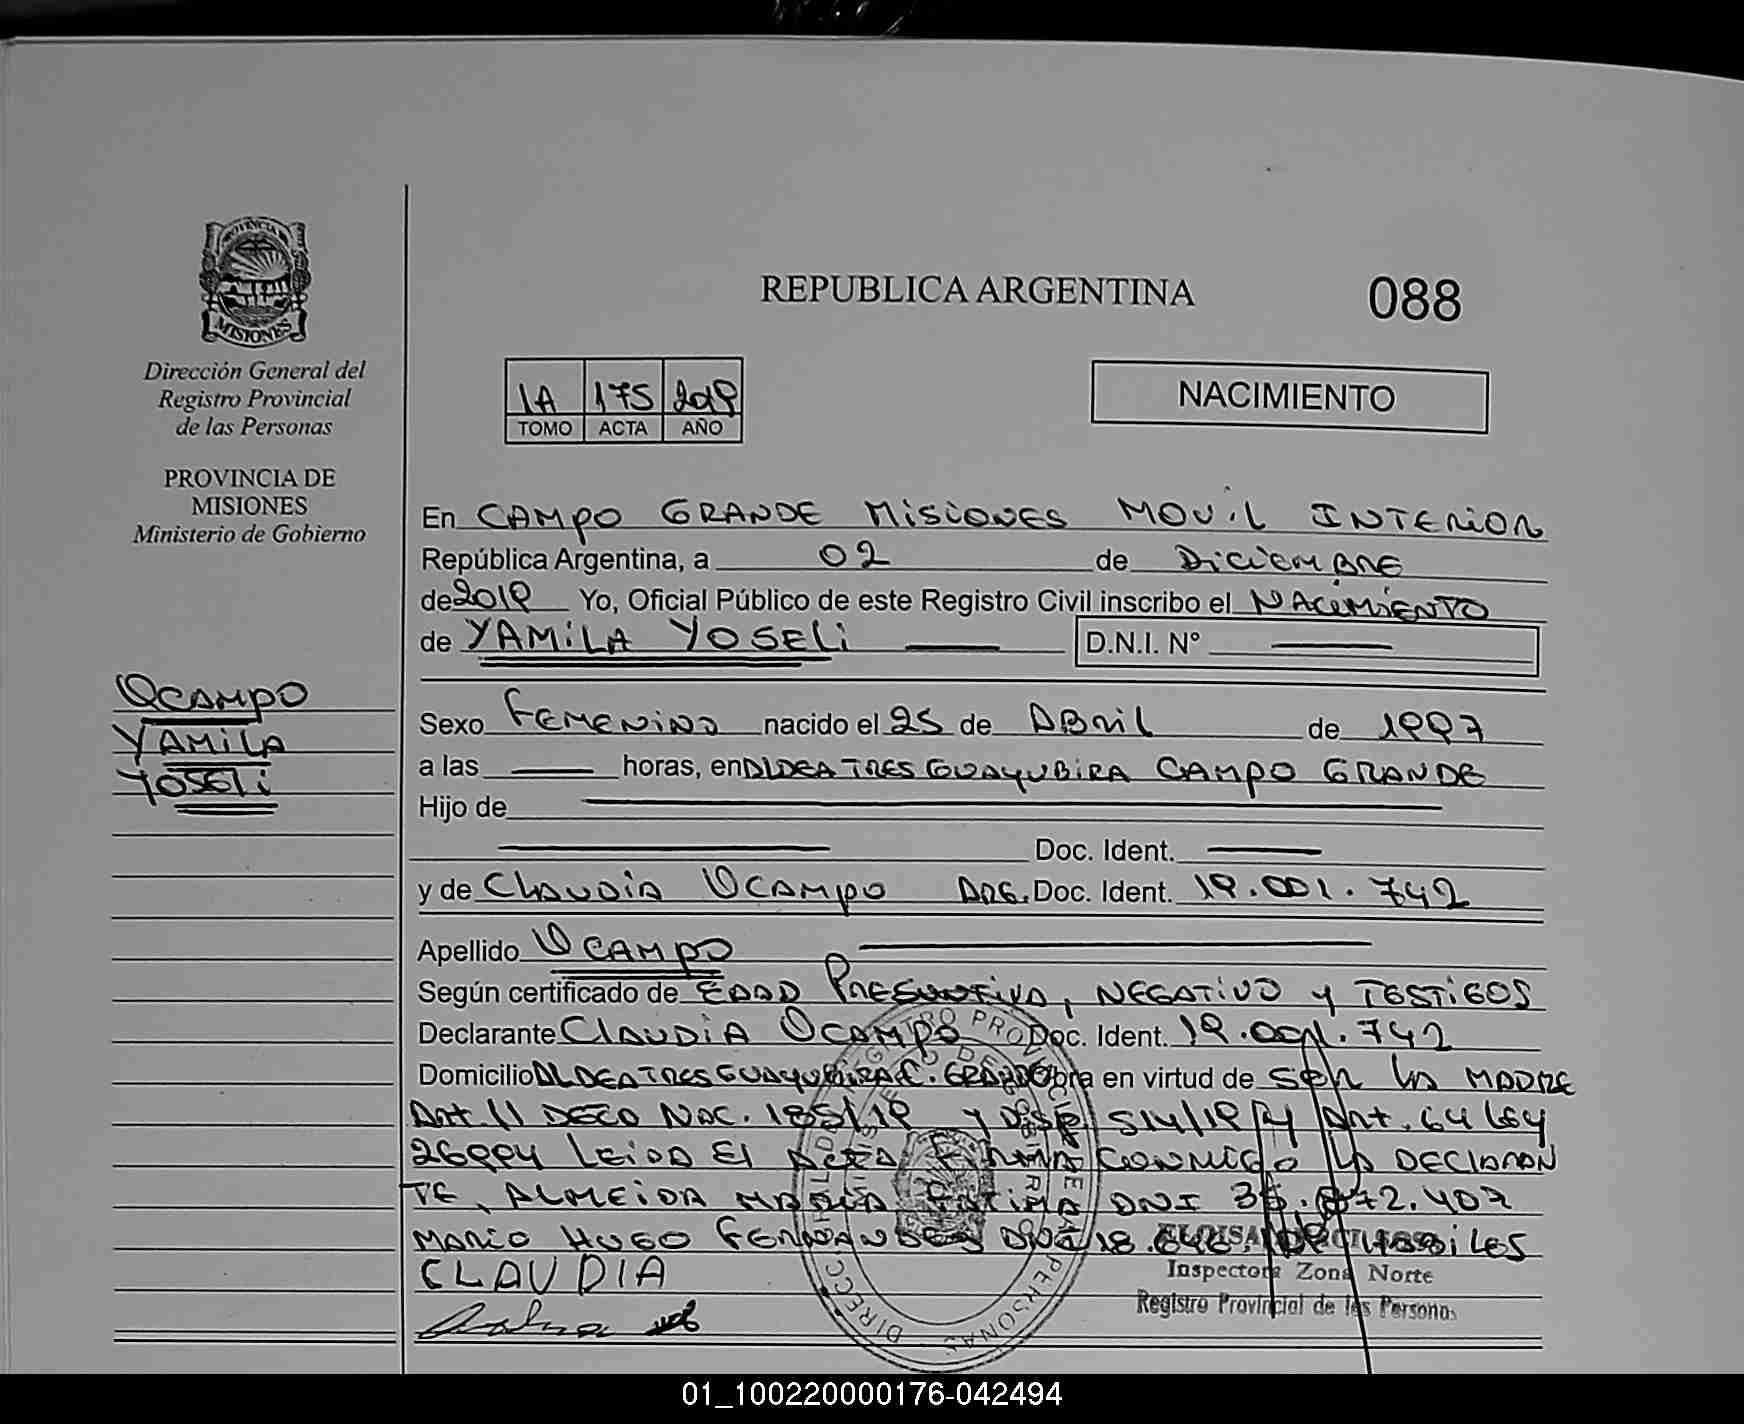 PROVINCIA
MISIONES
Dirección General del
Registro Provincial
de las Personas
PROVINCIA DE
MISIONES
Ministerio de Gobierno
OCAMPO
YAMILA
YOSELI
REPUBLICA ARGENTINA
088
1A 175 2019
TOMO ACTA AÑO
NACIMIENTO
En CAMPO GRANDE MISIONES MOVIL INTERIOR
República Argentina, a 02 de DICIEMBRE
de 2019 Yo, Oficial Público de este Registro Civil inscribo el NACIMIENTO
de YAMILA YOSELI D.N.I. Nº
Sexo FEMENINO nacido el 25 de ABRIL de 1997
a las horas, en ALDEA TRES GUAYUBIRA CAMPO GRANDE
Hijo de
Doc. Ident.
y de CLAUDIA OCAMPO ARG. Doc. Ident. 19.001.742
Apellido OCAMPO
Según certificado de EDAD PRESUNTIVA, NEGATIVO Y TESTIGOS
Declarante CLAUDIA OCAMPO Doc. Ident. 19.001.742
Domicilio ALDEA TRES GUAYUBIRA C. GRANDE Obra en virtud de SER LA MADRE
Art. 11 DECO NAC. 185/19 Y DISP. 514/19 Y Art. 64 LEY
26994 LEIDA El ACTA FIRMA CONMIGO LA DECLARAN
TE, ALMEIDA MARIA FATIMA DNI 35. 72.407
MARIO HUGO FERNANDES DNI 18.646. HABILES
CLAUDIA
Inspectora Zona Norte
Registro Provincial de las Personas
01_100220000176-042494